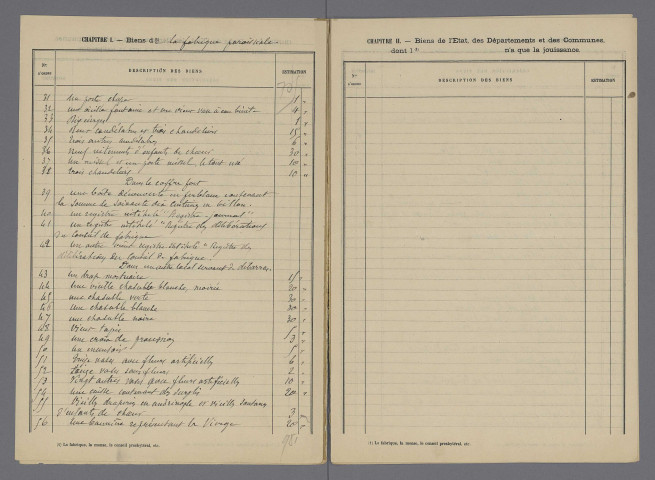 CHAPITRE I. — Biens de la fabrique paroissiale
Nos d'ordre
DESCRIPTION DES BIENS
ESTIMATION
31 un porte
32 et un vieux vase à eau bénite 4 "
33
34 Deux candélabres et trois chandeliers 15 "
35 trois autres candélabres 6 "
36 Neuf vêtements d'enfants de chœur 30 "
37 Un missel et un porte missel, le tout usé 10 "
38 trois chandeliers 10 "
Dans le coffre fort
39 une boîte découverte en fer blanc contenant
la somme de soixante dix centimes en billon.
40 un registre intitulé "Registre-journal"
41 un registre intitulé "Registre des délibérations
du Conseil de fabrique
42 Un autre vieux registre intitulé "Registre des
délibérations du Conseil de fabrique.
Dans un autre local servant de débarras.
43 un drap mortuaire 15 "
44 Une vieille chasuble blanche, moirée 20 "
45 une chasuble verte 30 "
46 une chasuble blanche 30 "
47 une chasuble noire 30 "
48 Vieux tapis 5 "
49 Une croix de procession 3 "
50 un encensoir 5 "
51 vases avec fleurs artificielles 6 "
52 vases sans fleurs 2 "
53 Vingt autres vases avec fleurs artificielles 10 "
54 une caisse contenant des surplis 20 "
55 Vieilles draperies en andrinople et vieilles soutanes
d'enfants de chœur 3
56 une bannière représentant la Vierge 20 "
(1) La fabrique, la mense, le conseil presbytéral, etc.
CHAPITRE II. — Biens de l'Etat, des Départements et des Communes,
dont l (1) n'a que la jouissance.
Nos d'ordre
DESCRIPTION DES BIENS
ESTIMATION
(1) La fabrique, la mense, le conseil presbytéral, etc.